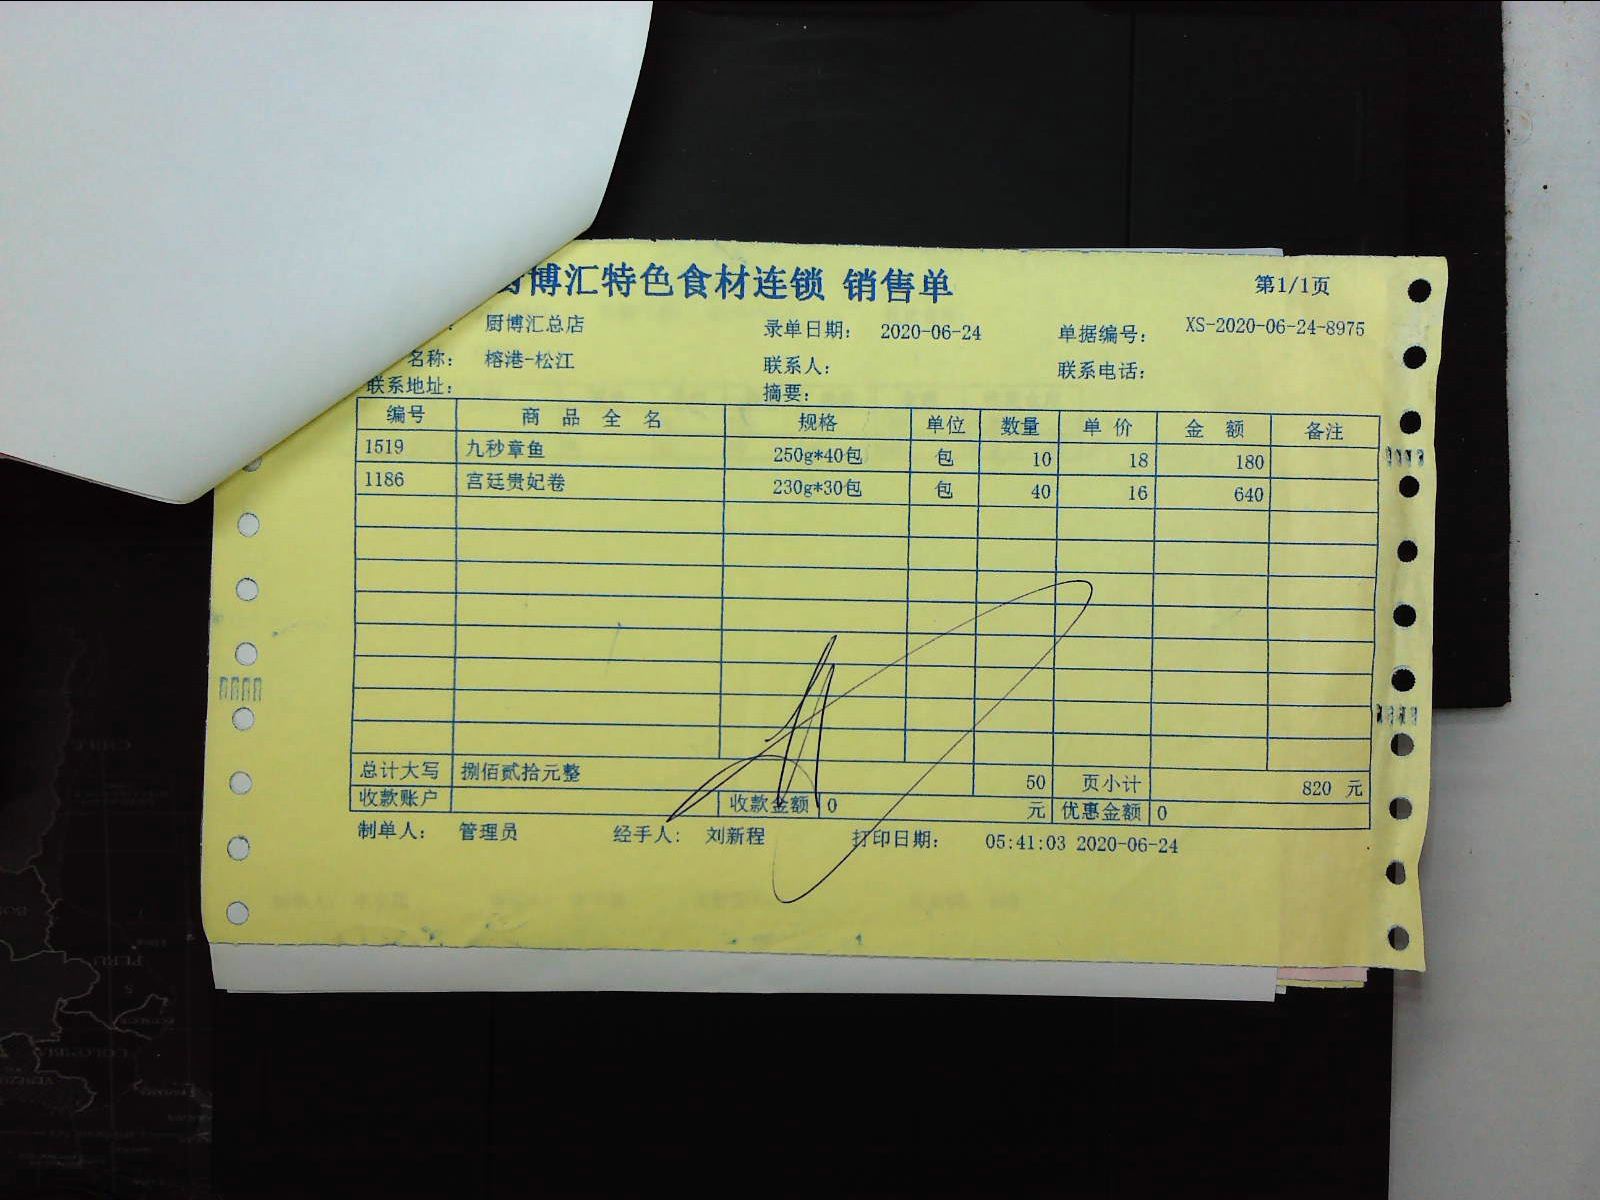 博汇特色食材连锁 销售单 第1/1页
厨博汇总店 录单日期: 2020-06-24 单据编号: XS-2020-06-24-8975
名称: 榕港-松江 联系人: 联系电话:
联系地址: 摘要:
编号 商品全名 规格 单位 数量 单价 金额 备注
1519 九秒章鱼 250g*40包 包 10 18 180
1186 宫廷贵妃卷 230g*30包 包 40 16 640
总计大写 捌佰贰拾元整 50 页小计 820 元
收款账户 收款金额 0 元 优惠金额 0
制单人: 管理员 经手人: 刘新程 打印日期: 05:41:03 2020-06-24